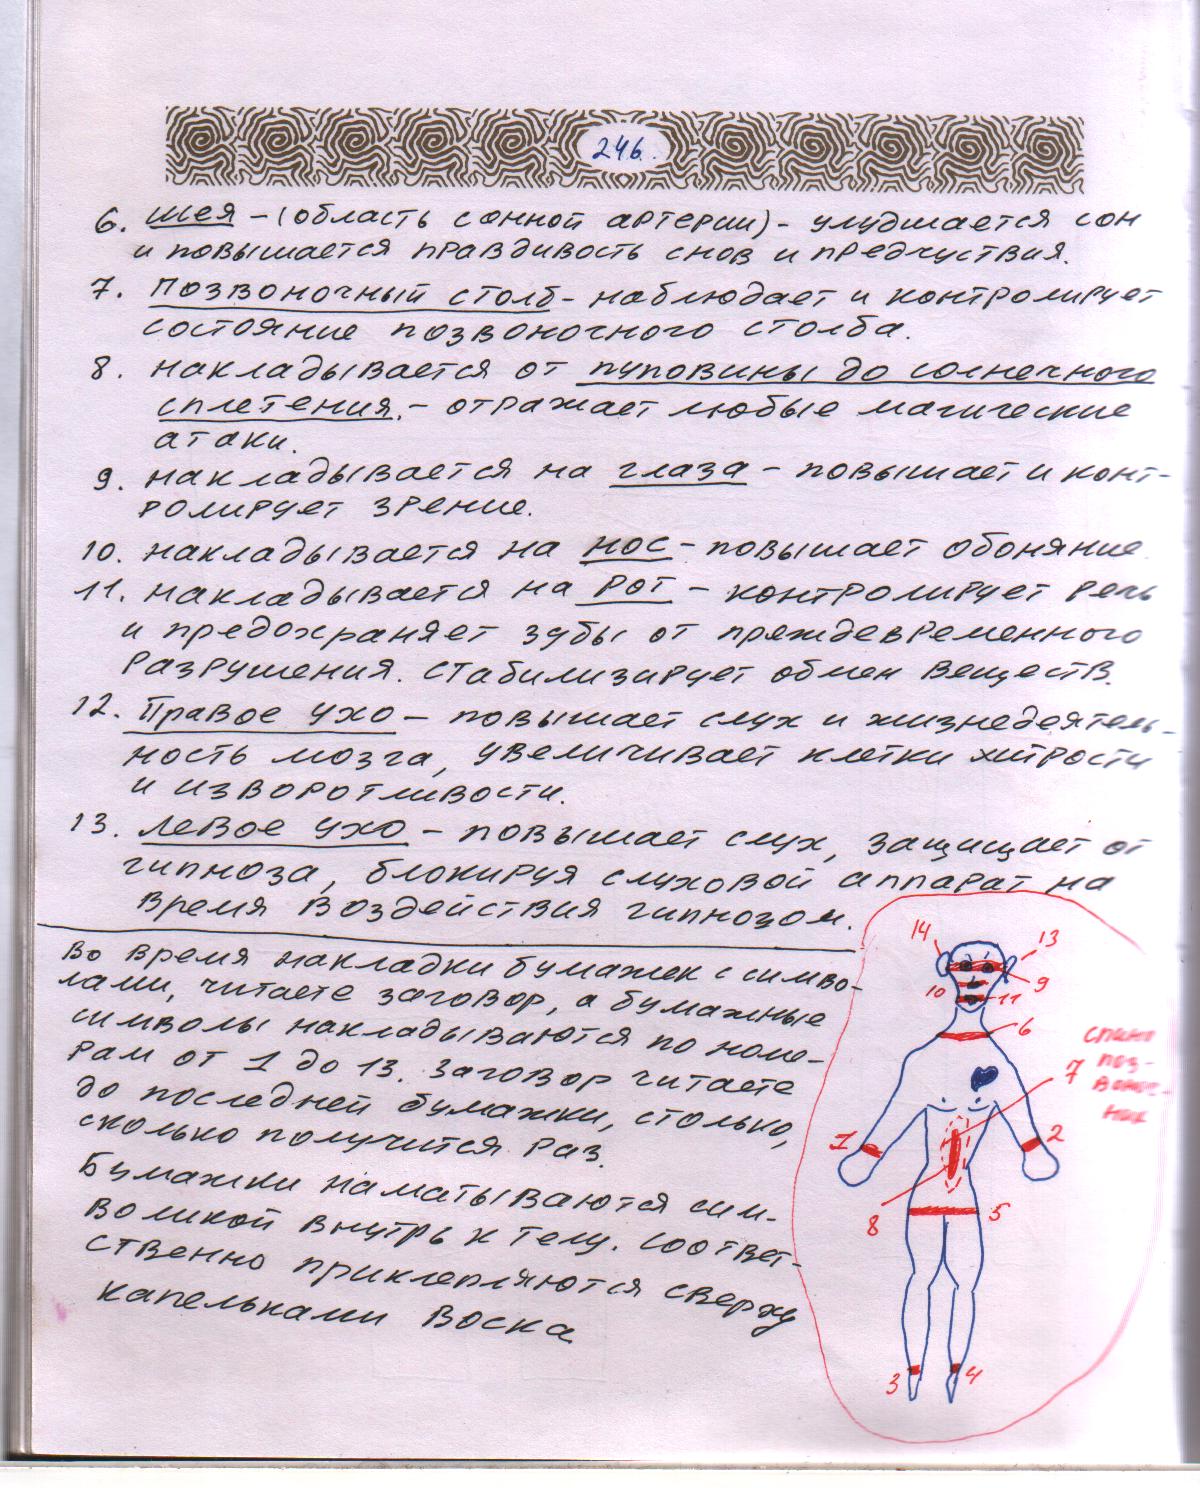 246.
6. шея – (область сонной артерии) – улудшается сон
и повышается правдивость снов и предчуствия.
7. позвоночный столб – наблюдает и контролирует
состояние позвоночного столба.
8. накладывается от пуповины до солнечного
сплетения. – отражает любые магические
атаки.
9. накладывается на глаза – повышает и конт-
ролирует зрение.
10. накладывается на нос – повышает обоняние.
11. накладывается на рот – контролирует речь
и предохраняет зубы от преждевременного
разрушения. стабилизирует обмен веществ.
12. Правое ухо – повышает слух и жизнедеятель-
ность мозга, увеличивает клетки хитрости
и изворотливости.
13. Левое ухо – повышает слух, защищает от
гипноза, блокируя слуховой аппарат на
время воздействия гипнозом.
Во время накладки бумажек с симво-
лами, читаете заговор, а бумажные
символы накладываются по номе-
рам от 1 до 13. Заговор читаете
до последней бумажки, столько,
сколько получится раз.
Бумажки наматываются сим-
воликой внутрь к телу. соответ-
ственно приклепляются сверху
капельками воска
14
13
9
10
11
6
7
поз-
воноч-
ник
1
2
8
5
3
4